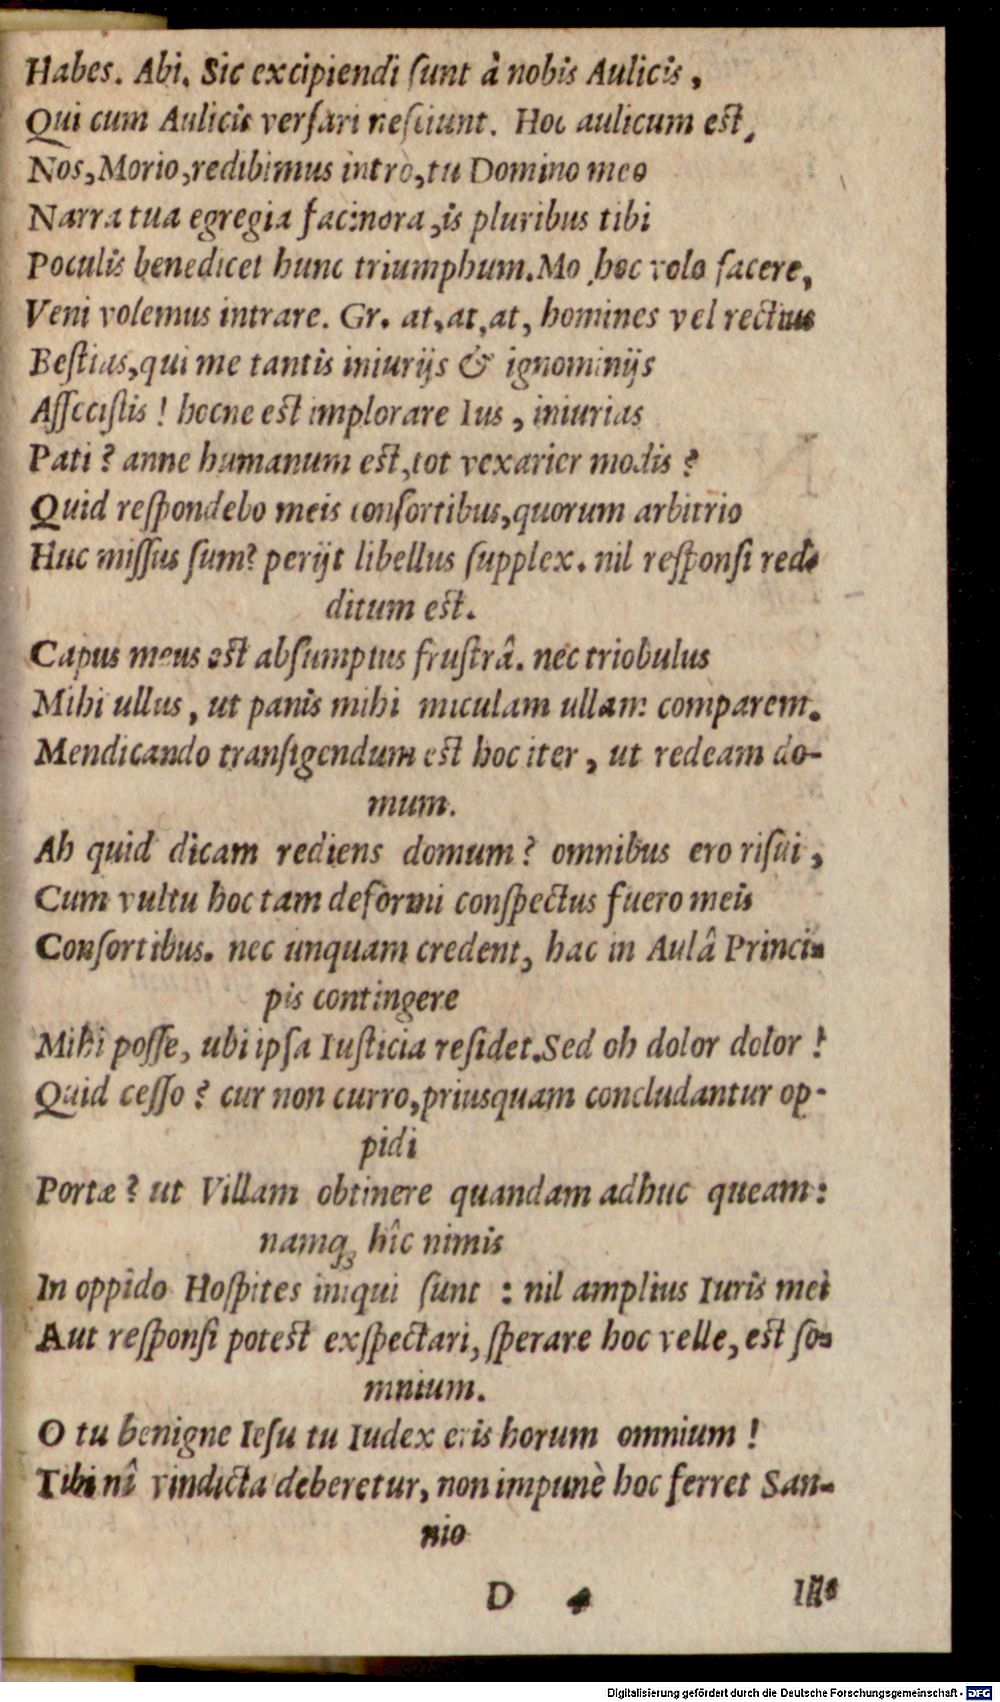 Habes. Abi. Sic excipiendi ſunt à nobis Aulicis,
Qui cum Aulicis verſari neſciunt. Hoc aulicum eſt,
Nos, Morio, redibimus intrò, tu Domino meo
Narra tua egregia facinora, is pluribus tibi
Poculis benedicet hunc triumphum. Mo hoc volo facere,
Veni volemus intrare. Gr. at, at, at, homines vel rectius
Beſtias, qui me tantis iniurijs & ignominijs
Affeciſtis! hocne eſt implorare Ius, iniurias
Pati? anne humanum eſt, tot vexarier modis?
Quid reſpondebo meis conſortibus, quorum arbitrio
Huc miſſus ſum? perijt libellus ſupplex. nil reſponſi red-
ditum eſt.
Capus meus eſt abſumptus fruſtrâ. nec triobulus
Mihi ullus, ut panis mihi miculam ullam comparem.
Mendicando tranſigendum eſt hoc iter, ut redeam do-
mum.
Ah quid dicam rediens domum? omnibus ero riſui,
Cum vultu hoc tam deformi conſpectus fuero meis
Conſortibus. nec unquam credent, hac in Aulâ Princi-
pis contingere
Mihi poſſe, ubi ipſa Iuſticia reſidet. Sed oh dolor dolor!
Quid ceſſo? cur non curro, priusquam concludantur op-
pidi
Portæ? ut Villam obtinere quandam adhuc queam:
namq; hîc nimis
In oppido Hoſpites iniqui ſunt: nil amplius Iuris mei
Aut reſponſi poteſt exſpectari, ſperare hoc velle, eſt ſo-
mnium.
O tu benigne Ieſu tu Iudex eris horum omnium!
Tibi nî vindicta deberetur, non impunè hoc ferret San-
nio
D Ille
Digitalisierung gefördert durch die Deutsche Forschungsgemeinschaft - DFG